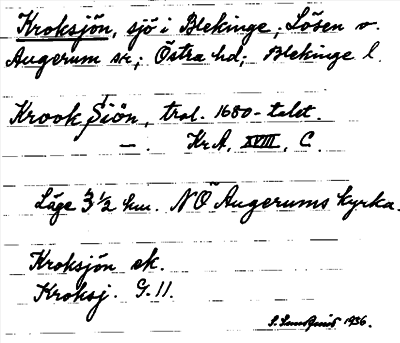 Kroksjön, sjö i Blekinge, Lösen o.
Augerum skr; Östra hd; Blekinge l.
Krook Siön, trol. 1680-talet.
—. KrA, XVIII, C.
Läge 3 1/2 km. NÖ Augerums kyrka.
Kroksjön ek.
Kroksj. G. 11.
1936.